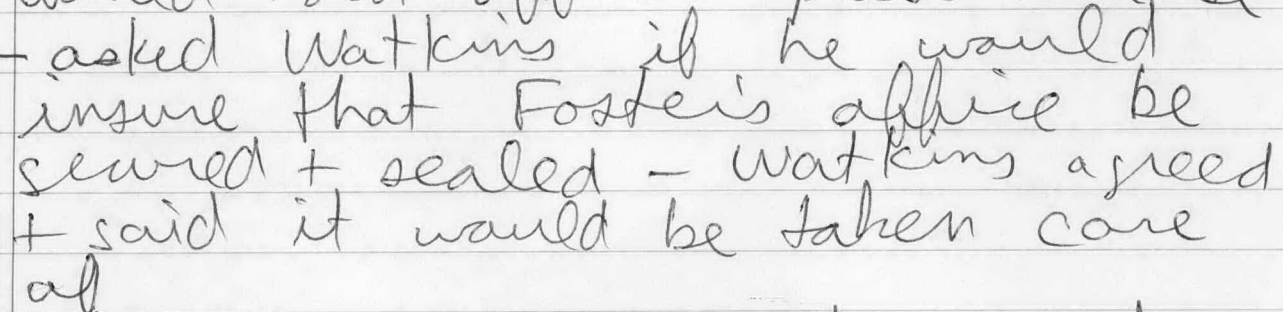 - asked Watkins if he would
insure that Foster's office be
secured + sealed - Watkins agreed
+ said it would be taken care
of